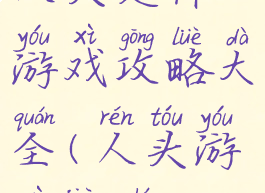 yóu xì gōng lüè dà
游戏攻略大
quán rén tóu yóu
全(人头游